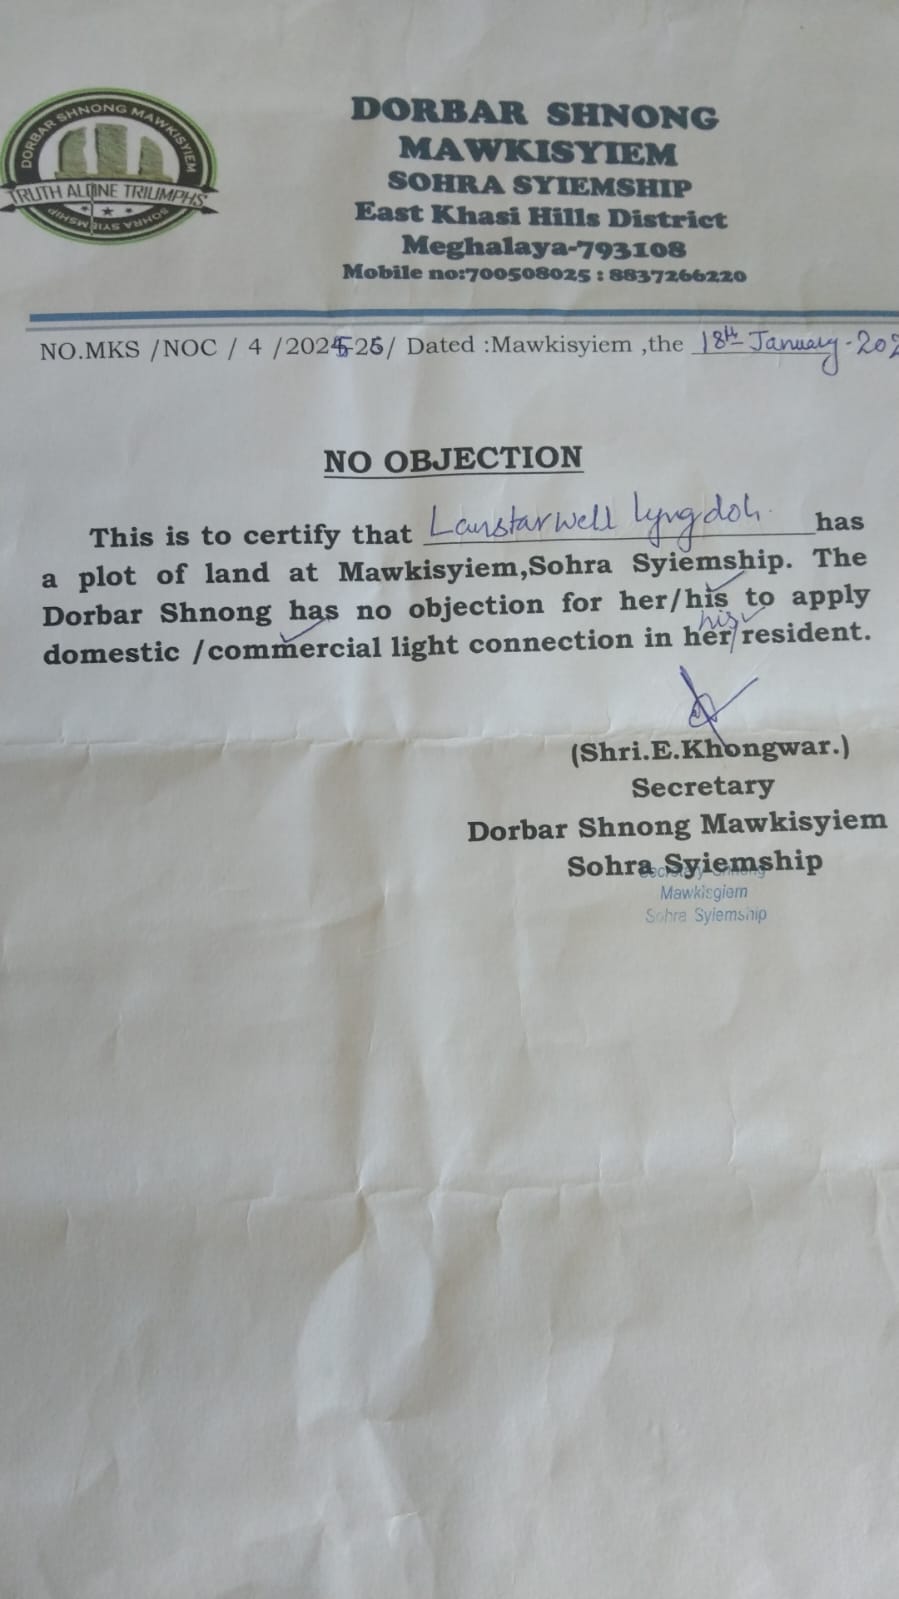 DORBAR SHNONG MAWKISYIEM
TRUTH ALOINE TRIUMPHS
SOHRA SYIEMSHIP
DORBAR SHNONG
MAWKISYIEM
SOHRA SYIEMSHIP
East Khasi Hills District
Meghalaya-793108
Mobile no:700508025 : 8837266220
NO.MKS /NOC / 4 /2025-26/ Dated :Mawkisyiem ,the 18th January-202
NO OBJECTION
This is to certify that Lanstarwell lyngdoh. has
a plot of land at Mawkisyiem,Sohra Syiemship. The
Dorbar Shnong has no objection for her/his to apply
his
domestic /commercial light connection in her/resident.
(Shri.E.Khongwar.)
Secretary
Dorbar Shnong Mawkisyiem
Sohra Syiemship
Secretary Shnong
Mawkisyiem
Sohra Syiemship